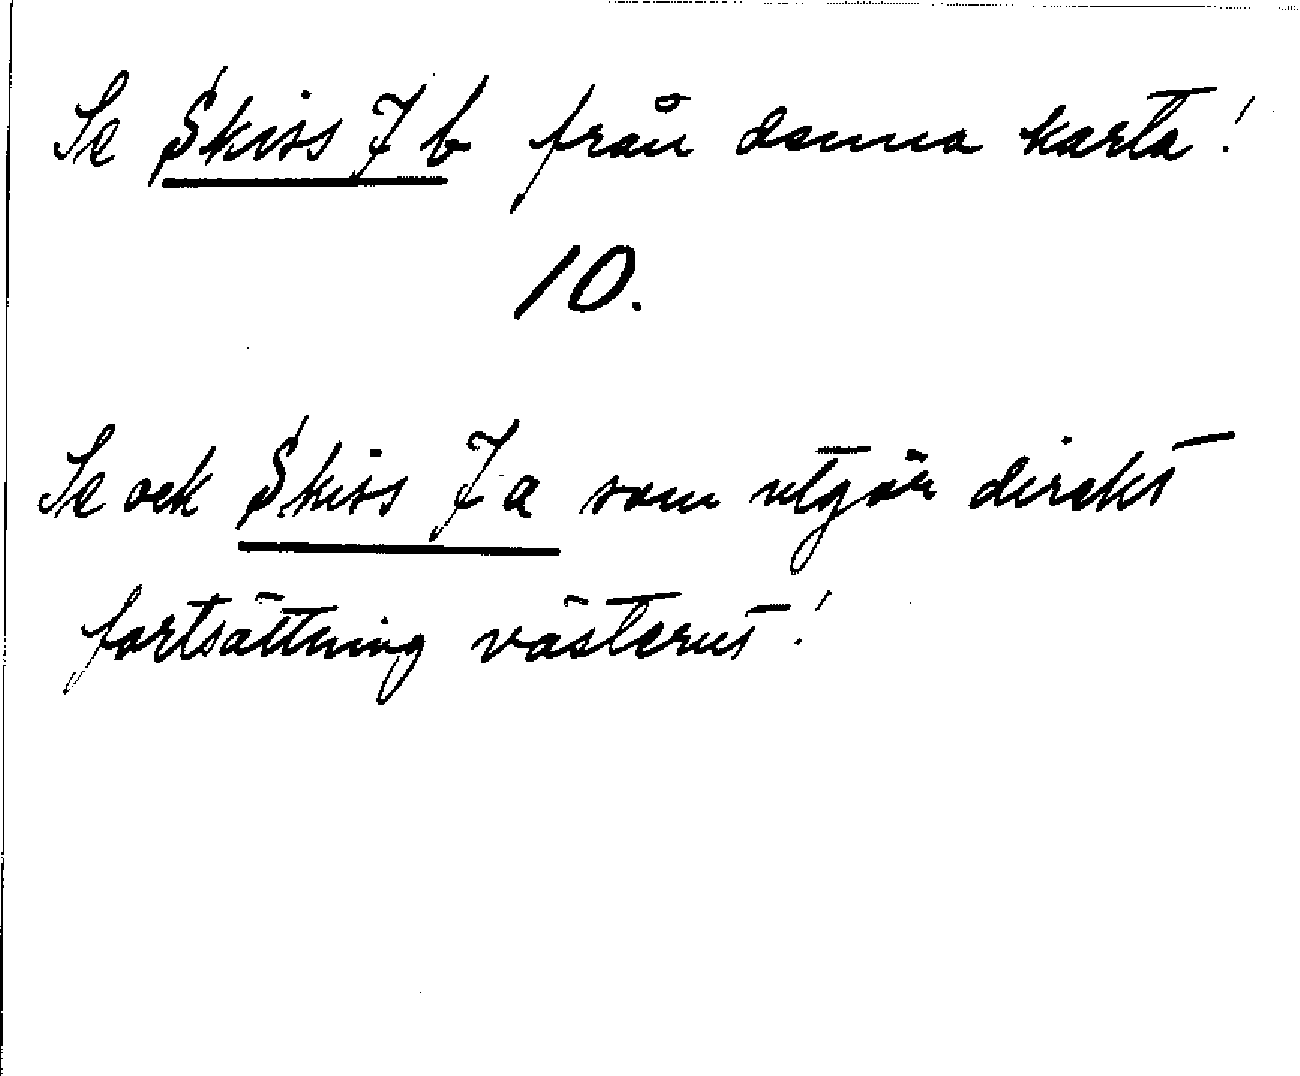 Se Skiss 7 b från denna karta!
10.
Se ock Skiss 7a som utgör direkt
fortsättning västerut!